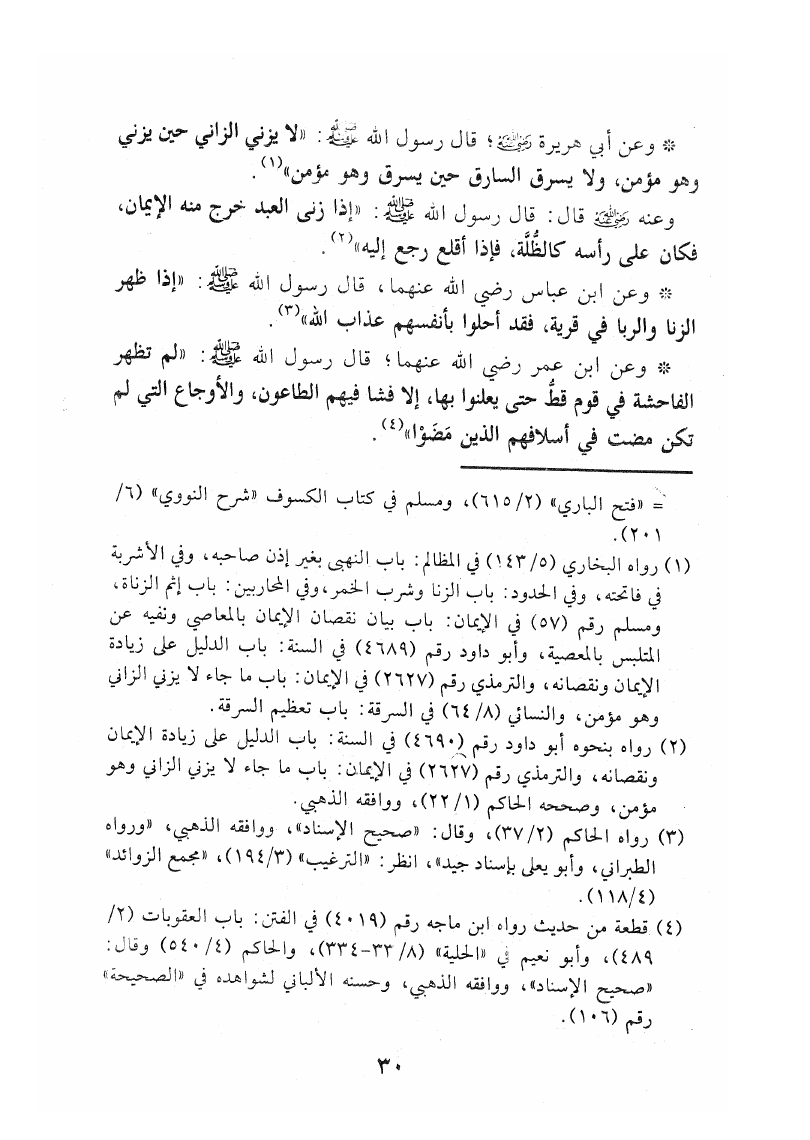 * وعن أبي هريرة رضي الله عنه؛ قال رسول الله ﷺ: «لا يزني الزاني حين يزني
وهو مؤمن، ولا يسرق السارق حين يسرق وهو مؤمن»(١).
وعنه رضي الله عنه قال: قال رسول الله ﷺ: «إذا زنى العبد خرج منه الإيمان،
فكان على رأسه كالظُّلَّة، فإذا أقلع رجع إليه»(٢).
* وعن ابن عباس رضي الله عنهما، قال رسول الله ﷺ: «إذا ظهر
الزنا والربا في قرية، فقد أحلوا بأنفسهم عذاب الله»(٣).
* وعن ابن عمر رضي الله عنهما؛ قال رسول الله ﷺ: «لم تظهر
الفاحشة في قوم قطُّ حتى يعلنوا بها، إلا فشا فيهم الطاعون، والأوجاع التي لم
تكن مضت في أسلافهم الذين مَضَوْا»(٤).
= «فتح الباري» (٢/ ٦١٥)، ومسلم في كتاب الكسوف «شرح النووي» (٦/
٢٠١).
(١) رواه البخاري (٥/ ١٤٣) في المظالم: باب النهبى بغير إذن صاحبه، وفي الأشربة
في فاتحته، وفي الحدود: باب الزنا وشرب الخمر، وفي المحاربين: باب إثم الزناة،
ومسلم رقم (٥٧) في الإيمان: باب بيان نقصان الإيمان بالمعاصي ونفيه عن
المتلبس بالمعصية، وأبو داود رقم (٤٦٨٩) في السنة: باب الدليل على زيادة
الإيمان ونقصانه، والترمذي رقم (٢٦٢٧) في الإيمان: باب ما جاء لا يزني الزاني
وهو مؤمن، والنسائي (٨/ ٦٤) في السرقة: باب تعظيم السرقة.
(٢) رواه بنحوه أبو داود رقم (٤٦٩٠) في السنة: باب الدليل على زيادة الإيمان
ونقصانه، والترمذي رقم (٢٦٢٧) في الإيمان: باب ما جاء لا يزني الزاني وهو
مؤمن، وصححه الحاكم (١/ ٢٢)، ووافقه الذهبي.
(٣) رواه الحاكم (٢/ ٣٧)، وقال: «صحيح الإسناد»، ووافقه الذهبي، «ورواه
الطبراني، وأبو يعلى بإسناد جيد»، انظر: «الترغيب» (٣/ ١٩٤)، «مجمع الزوائد»
(٤/ ١١٨).
(٤) قطعة من حديث رواه ابن ماجه رقم (٤٠١٩) في الفتن: باب العقوبات (٢/
٤٨٩)، وأبو نعيم في «الحلية» (٨/ ٣٣-٣٣٤)، والحاكم (٤/ ٥٤٠) وقال:
«صحيح الإسناد»، ووافقه الذهبي، وحسنه الألباني لشواهده في «الصحيحة»
رقم (١٠٦).
٣٠